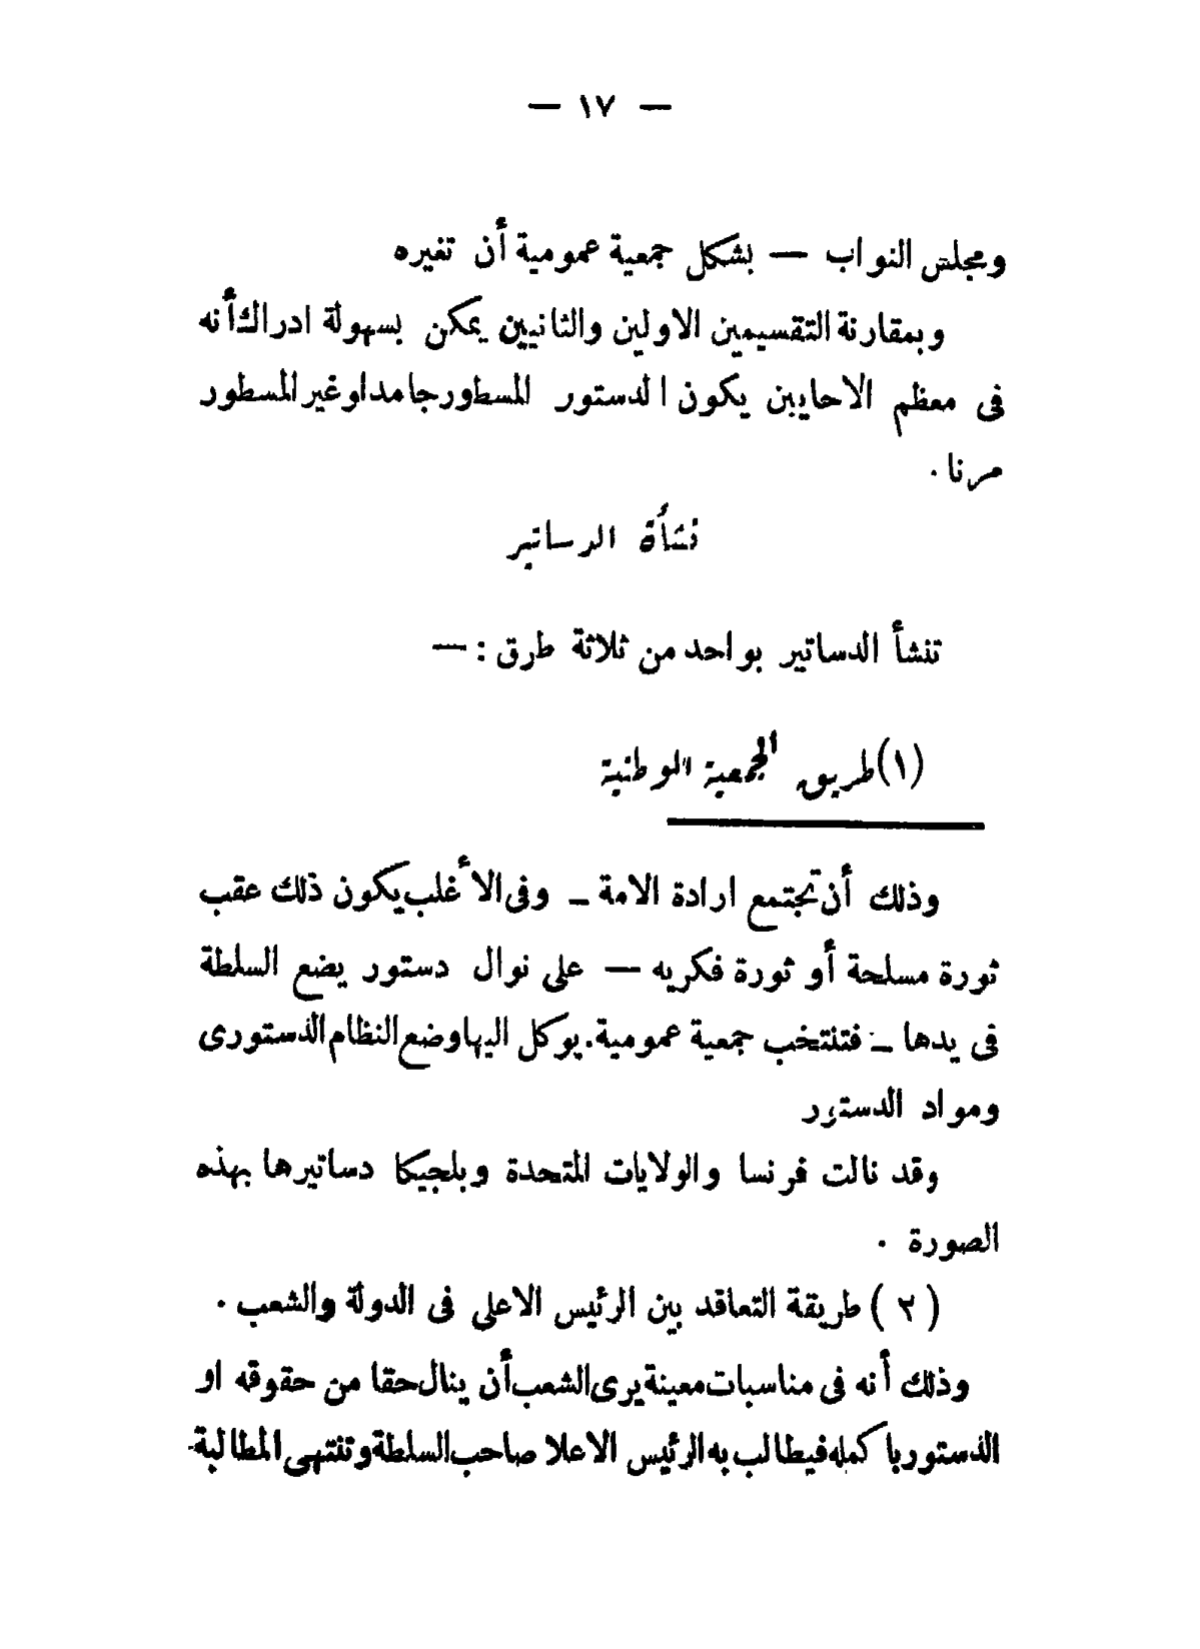 — ١٧ —
ومجلس النواب — بشكل جمعية عمومية أن تغيره
وبمقارنة التقسيمين الاولين والثانيين يمكن بسهولة ادراك أنه
فى معظم الاحايين يكون الدستور المسطور جامدا وغير المسطور
مرنا .
نشأة الدساتير
تنشأ الدساتير بواحد من ثلاثة طرق : —
(١) طريق الجمعية الوطنية
وذلك أن تجتمع ارادة الامة — وفى الأغلب يكون ذلك عقب
ثورة مسلحة أو ثورة فكريه — على نوال دستور يضع السلطة
فى يدها — فتنتخب جمعية عمومية . يوكل اليها وضع النظام الدستورى
ومواد الدستور
وقد نالت فرنسا والولايات المتحدة وبلجيكا دساتيرها بهذه
الصورة .
( ٢ ) طريقة التعاقد بين الرئيس الاعلى فى الدولة والشعب .
وذلك أنه فى مناسبات معينة يرى الشعب أن ينال حقا من حقوقه او
الدستور باكمله فيطالب به الرئيس الاعلا صاحب السلطة وتنتهى المطالبة